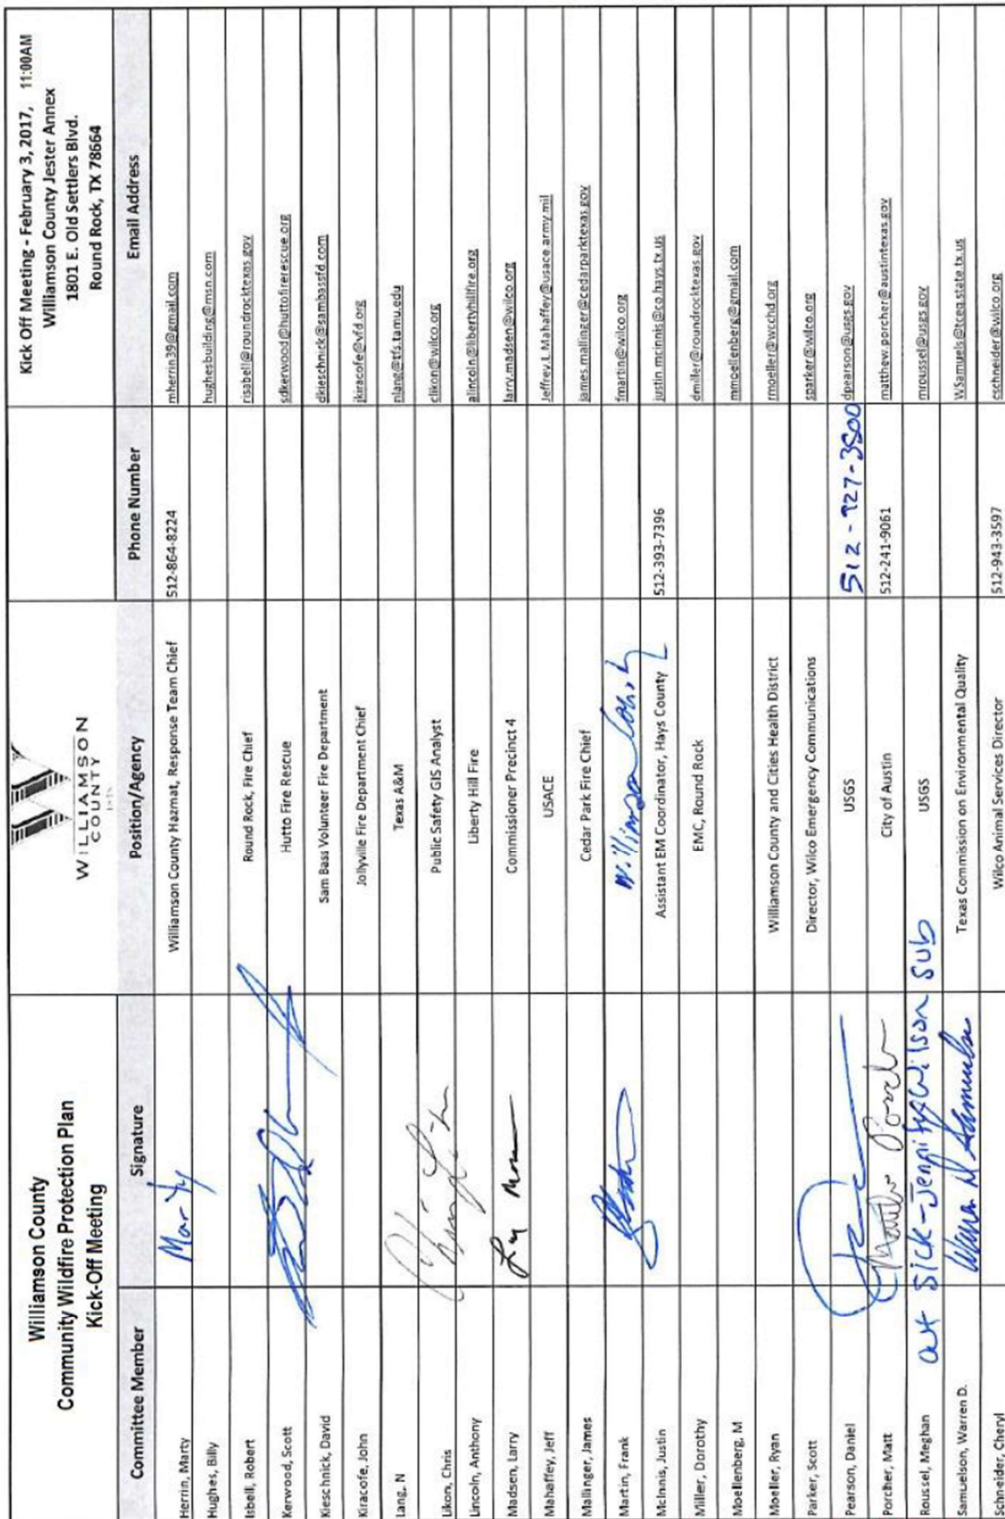 Williamson County
Community Wildfire Protection Plan
Kick-Off Meeting
WILLIAMSON
COUNTY
Kick Off Meeting - February 3, 2017, 11:00AM
Williamson County Jester Annex
1801 E. Old Settlers Blvd.
Round Rock, TX 78664
Committee Member Signature Position/Agency Phone Number Email Address
Herrin, Marty Marty Williamson County Hazmat, Response Team Chief 512-864-8224 mherrin39@gmail.com
Hughes, Billy hughesbuilding@msn.com
Isbell, Robert Round Rock, Fire Chief risabell@roundrocktexas.gov
Kerwood, Scott Hutto Fire Rescue sdkerwood@huttofirerescue.org
Kieschnick, David Sam Bass Volunteer Fire Department dkieschnick@sambassfd.com
Kiracofe, John Jollyville Fire Department Chief jkiracofe@jvfd.org
Lang, N Texas A&M nlang@tfs.tamu.edu
Likon, Chris Public Safety GIS Analyst clikon@wilco.org
Lincoln, Anthony Liberty Hill Fire alincoln@libertyhillfire.org
Madsen, Larry Commissioner Precinct 4 larry.madsen@wilco.org
Mahaffey, Jeff USACE Jeffrey.L.Mahaffey@usace.army.mil
Mallinger, James Cedar Park Fire Chief james.mallinger@cedarparktexas.gov
Martin, Frank Williamson County fmartin@wilco.org
McInnis, Justin Assistant EM Coordinator, Hays County 512-393-7396 justin.mcinnis@co.hays.tx.us
Miller, Dorothy EMC, Round Rock dmiller@roundrocktexas.gov
Moellenberg, M mmoellenberg@gmail.com
Moeller, Ryan Williamson County and Cities Health District rmoeller@wcchd.org
Parker, Scott Director, Wilco Emergency Communications sparker@wilco.org
Pearson, Daniel USGS 512-927-3500 dpearson@usgs.gov
Porcher, Matt Matthew Porcher City of Austin 512-241-9061 matthew.porcher@austintexas.gov
Roussel, Meghan out sick-Jennifer Wilson sub USGS mroussel@usgs.gov
Samuelson, Warren D. Warren D Samuelson Texas Commission on Environmental Quality W.Samuels@tceq.state.tx.us
Schneider, Cheryl Wilco Animal Services Director 512-943-3597 cschneider@wilco.org